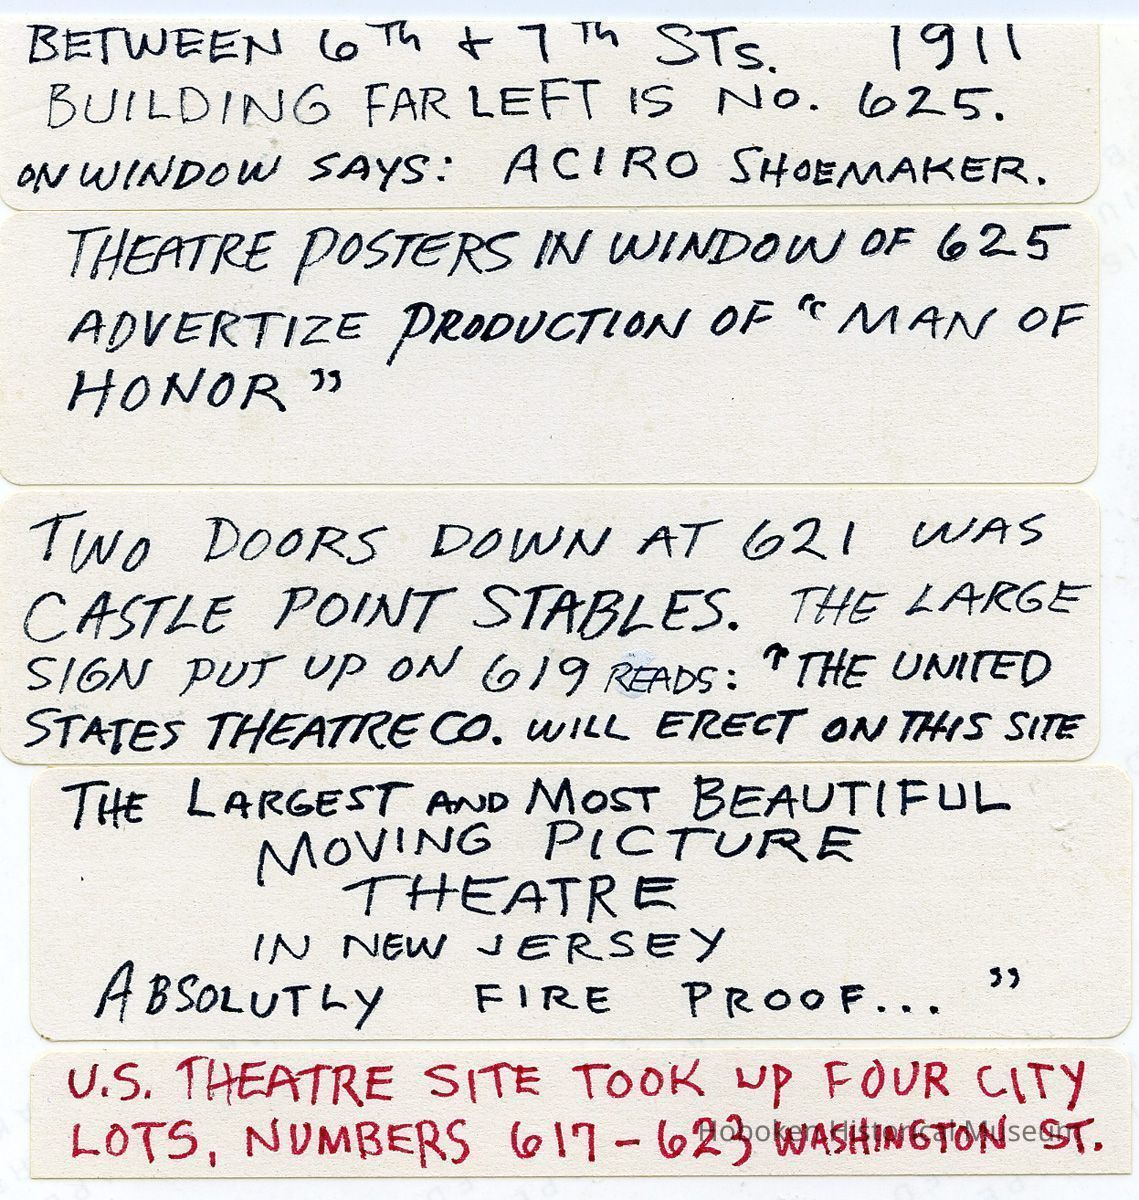 BETWEEN 6Th + 7Th STs. 1911
BUILDING FAR LEFT IS No. 625.
ON WINDOW SAYS: ACIRO SHOEMAKER.
THEATRE POSTERS IN WINDOW OF 625
ADVERTIZE PRODUCTION OF "MAN OF
HONOR"
TWO DOORS DOWN AT 621 WAS
CASTLE POINT STABLES. THE LARGE
SIGN PUT UP ON 619 READS: "THE UNITED
STATES THEATRE CO. WILL ERECT ON THIS SITE
THE LARGEST AND MOST BEAUTIFUL
MOVING PICTURE
THEATRE
IN NEW JERSEY
ABSOLUTLY FIRE PROOF... "
U.S. THEATRE SITE TOOK UP FOUR CITY
LOTS, NUMBERS 617-623 WASHINGTON ST.
Hoboken Historical Museum